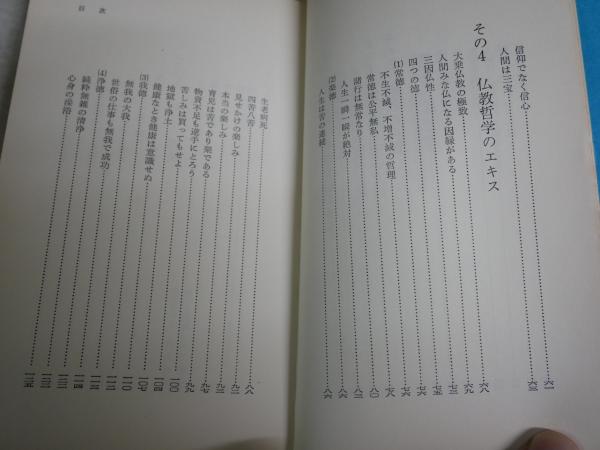 信仰でなく信心……六一
人間は三宝……六三
その4 仏教哲学のエキス
大乗仏教の極致……六八
人間みな仏になる因縁がある……六九
三因仏性……七三
四つの徳……七五
(1) 常徳……七六
不生不滅、不増不減の哲理……七八
常徳は公平無私……八〇
諸行は無常なり
人生一瞬一瞬が絶対
(2) 楽徳……八六
人生は苦の連続……八六
目次
生老病死……八八
四苦八苦
見せかけの楽しみ
本当の楽しみ
育児は苦であり楽である
物資不足も逆手にとろう
苦しみは買ってもせよ
地獄も浄土……一〇〇
健康なとき健康は意識せぬ……一〇四
(3) 我徳……一〇七
無我の大我……一一〇
世俗の仕事も無我で成功
(4) 浄徳
純粋無雑の清浄
心身の澡浴